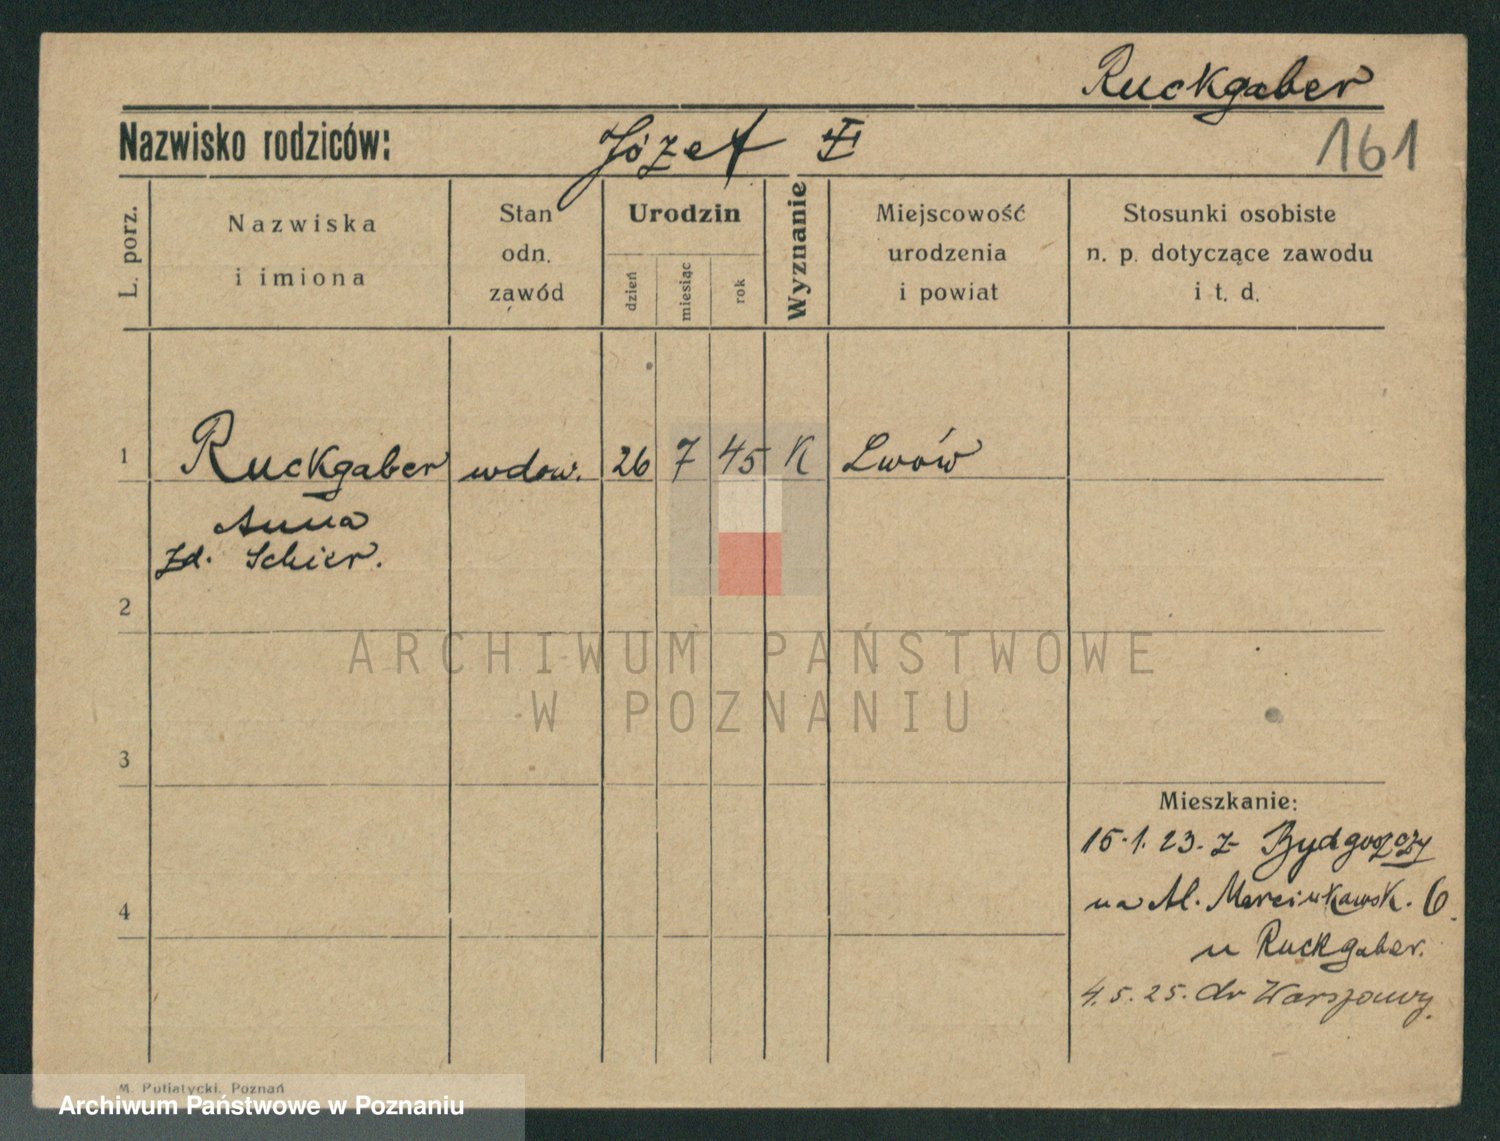 Ruckgaber
Nazwisko rodziców: Józef
161
L. porz.
Nazwiska i imiona
Stan odn. zawód
Urodzin
dzień
miesiąc
rok
Wyznanie
Miejscowość urodzenia i powiat
Stosunki osobiste n. p. dotyczące zawodu i t. d.
1 Ruckgaber wdow. 26 7 45 K Lwów
Anna
zd. Schier.
2
ARCHIWUM PAŃSTWOWE
W POZNANIU
3
Mieszkanie:
15.1.23. z Bydgoszczy
4
na Al. Marcinkowsk. 6.
u Ruckgaber.
4.5.25. do Warszawy.
M. Putiatycki, Poznań
Archiwum Państwowe w Poznaniu